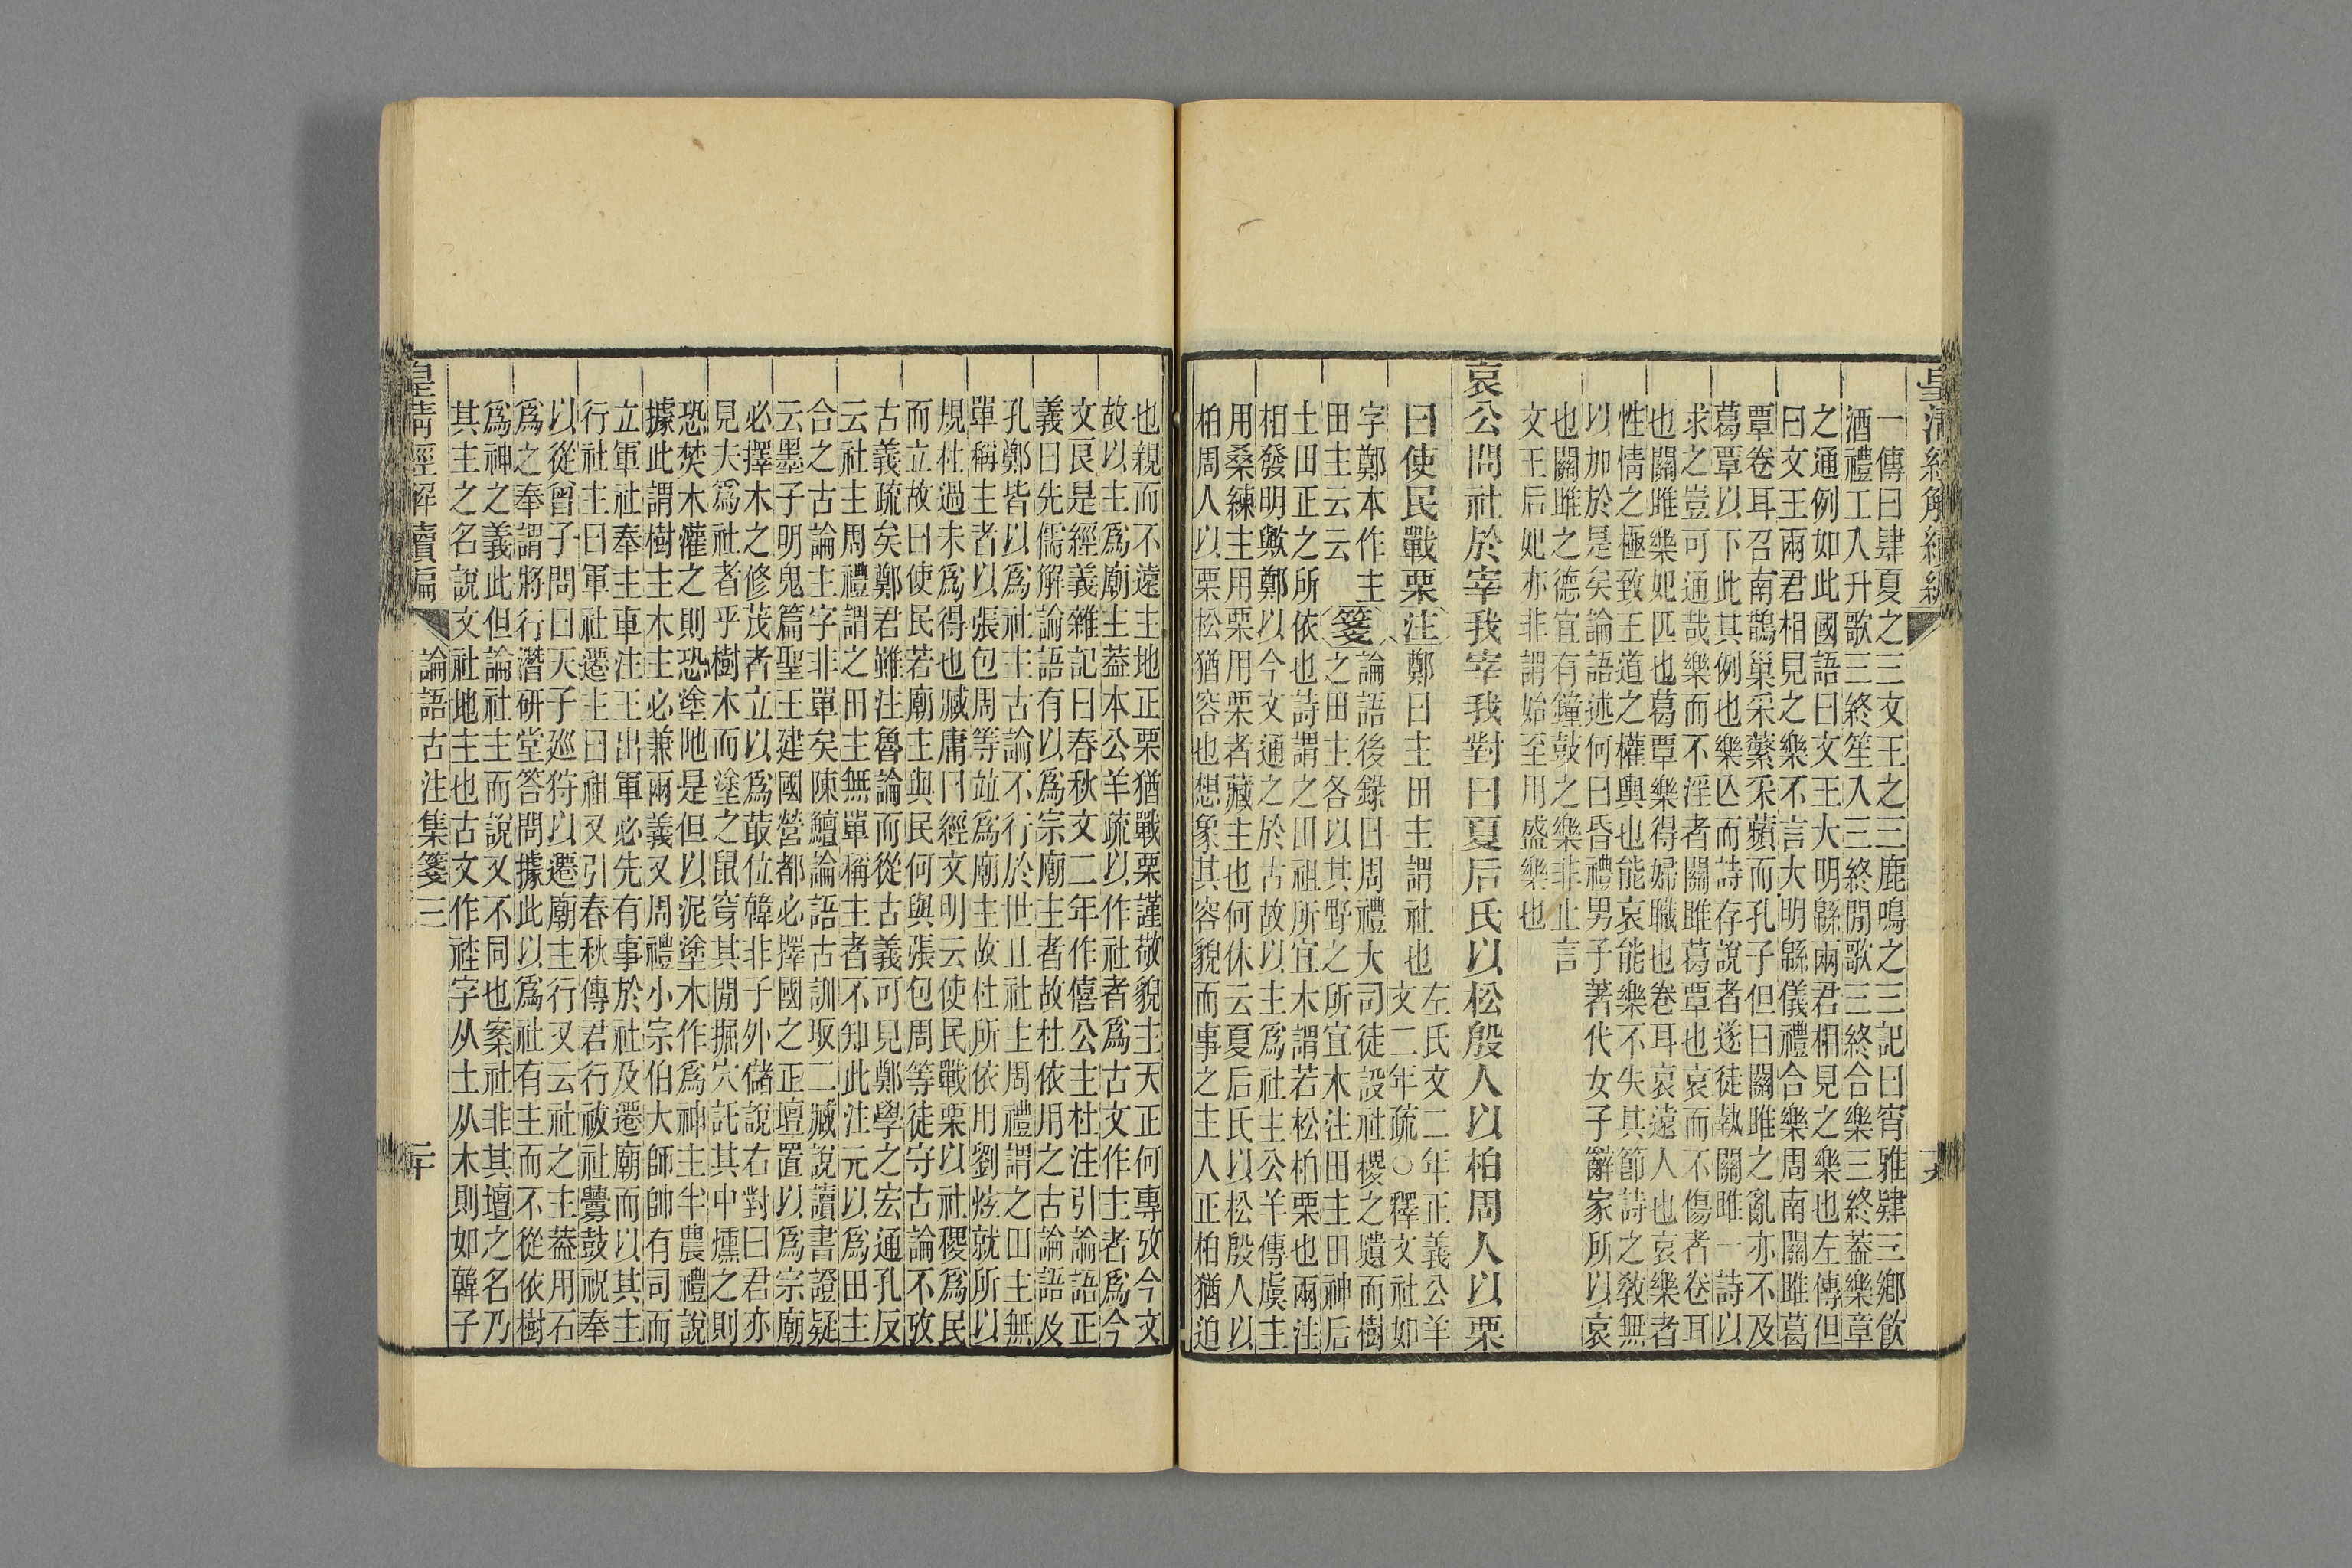 皇清經解續編
一傳曰肆夏之三文王之三鹿鳴之三記曰宵雅肄三鄉飲
酒禮工入升歌三終笙入三終閒歌三終合樂三終葢樂章
之通例如此國語曰文王大明緜兩君相見之樂也左傳但
曰文王兩君相見之樂不言大明緜儀禮合樂周南關雎葛
覃卷耳召南鵲巢采蘩采蘋而孔子但曰關雎之亂亦不及
葛覃以下此其例也樂亾而詩存說者遂徒執關雎一詩以
求之豈可通哉樂而不淫者關雎葛覃也哀而不傷者卷耳
也關雎樂妃匹也葛覃樂得婦職也卷耳哀遠人也哀樂者
性情之極致王道之權輿也能哀能樂不失其節詩之教無
以加於是矣論語述何曰昏禮男子著代女子辭家所以哀
也關雎之德宜有鐘鼓之樂非止言
文王后妃亦非謂始至用盛樂也
哀公問社於宰我宰我對曰夏后氏以松殷人以柏周人以栗
曰使民戰栗注鄭曰主田主謂社也左氏文二年正義公羊文二年疏○釋文社如
字鄭本作主箋論語後錄曰周禮大司徒設社稷之壝而樹
田主云云之田主各以其野之所宜木注田主田神后
土田正之所依也詩謂之田祖所宜木謂若松柏栗也兩注
相發明歟鄭以今文通之於古故以主爲社主公羊傳虞主
用桑練主用栗用栗者藏主也何休云夏后氏以松殷人以
柏周人以栗松猶容也想象其容貌而事之主人正柏猶迫
也親而不遠主地正栗猶戰栗謹敬貌主天正何專攷今文
故以主爲廟主葢本公羊疏以作社者爲古文作主者爲今
文艮是經義雜記曰春秋文二年作僖公主杜注引論語正
義曰先儒解論語有以爲宗廟主者故杜依用之古論語及
孔鄭皆以爲社主古論不行於世且社主周禮謂之田主無
單稱主者以張包周等竝爲廟主故杜所依用劉炫就所以
規杜過未爲得也臧庸曰經文明云使民戰栗以社稷爲民
而立故曰使民若廟主與民何與張包周等徒守古論不攷
古義疏矣鄭君雖注魯論而從古義可見鄭學之宏通孔反
云社主周禮謂之田主無單稱主者不知此注元以爲田主
合之古論主字非單矣陳鱣論語古訓取二臧說讀書證疑
云墨子明鬼篇聖王建國營都必擇國之正壇置以爲宗廟
必擇木之修茂者立以爲菆位韓非子外儲說右對曰君亦
見夫爲社者乎樹木而塗之鼠穿其閒掘穴託其中燻之則
恐焚木灌之則恐塗阤是但以泥塗木作爲神主半農禮說
據此謂樹主木主必兼兩義又周禮小宗伯大師帥有司而
立軍社奉主車注王出軍必先有事於社及遷廟而以其主
行社主曰軍社遷主曰祖又引春秋傳君行祓社釁鼓祝奉
以從曾子問曰天子巡狩以遷廟主行又云社之主葢用石
爲之奉謂將行潛研堂答問據此以爲社有主而不從依樹
爲神之義此但論社主而說又不同也案社非其壇之名乃
其主之名說文社地主也古文作𥙭字从土从木則如韓子
皇清經解續編
論語古注集箋三